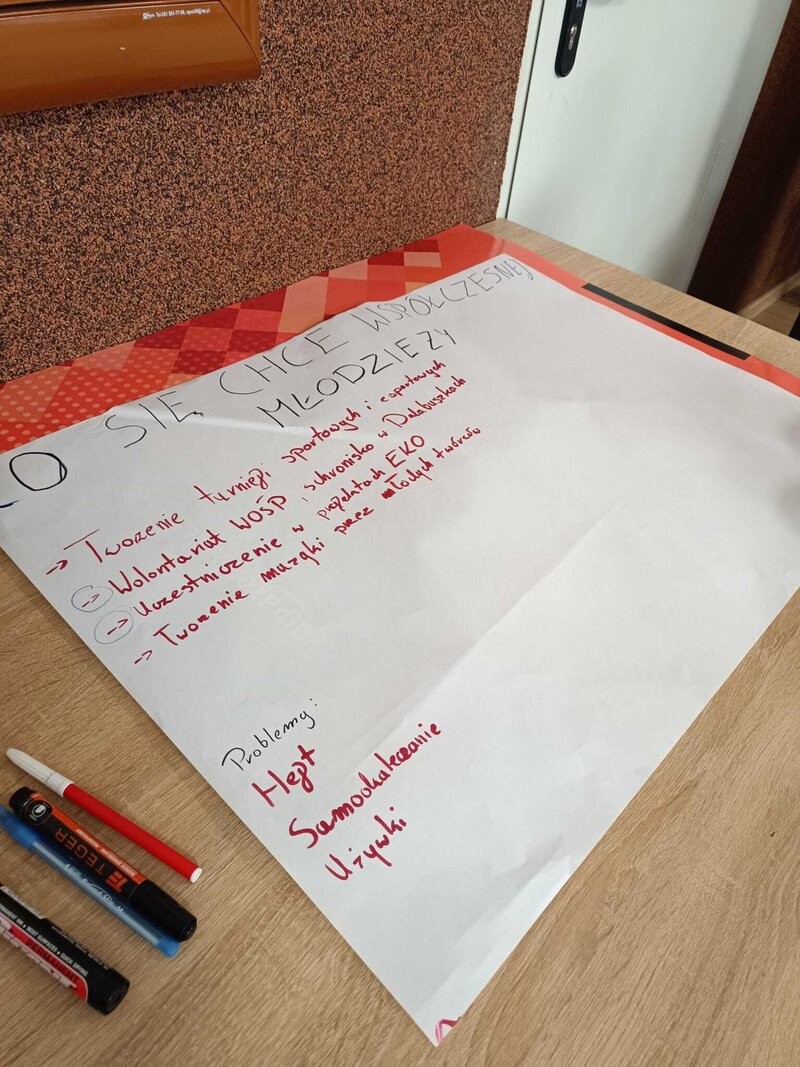 O SIĘ CHCE WSPÓŁCZESNEJ
MŁODZIEŻY
-> Tworzenie turnieji sportowych i esportowych
-> Wolontariat WOŚP, schronisko w Dalabuszkach
-> Uczestniczenie w projektach EKO
-> Tworzenie muzyki przez młodych twórców
Problemy:
Hejt
Samookaleczanie
Używki
TEGER
PERMANENT